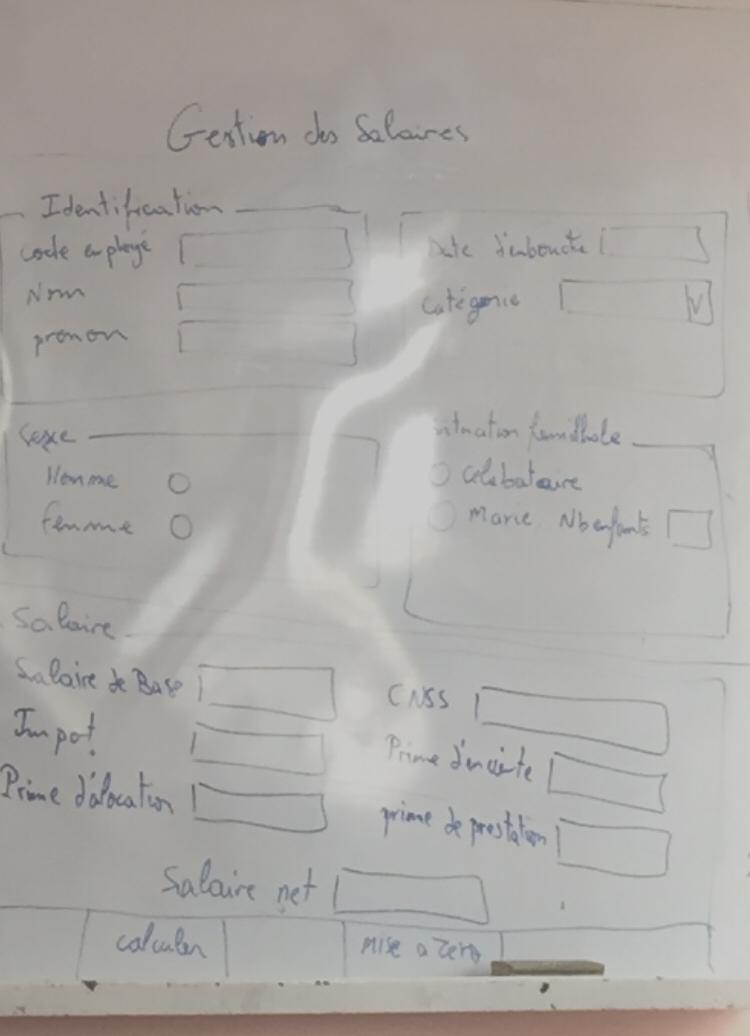 Gestion des Salaires
Identification
code employé
Nom
prenom
Date d'embouche
catégorie V
Sexe
Homme
femme
situation familhale
celebataire
Marie Nb enfants
Salaire
Salaire de Base
Impot
Prime d'alocation
CNSS
Prime
prime de prestation
Salaire net
calculer
Mise a Zero